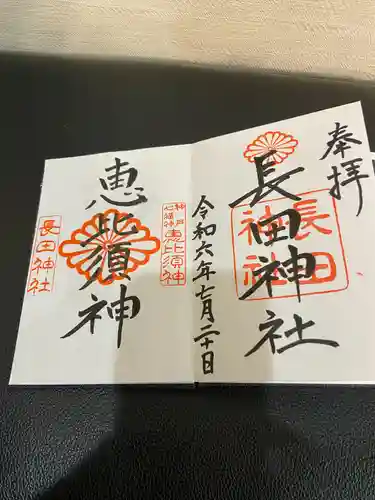 奉拝
長田神社
長田神社
令和六年七月二十日
神戸七福神
恵比須神
恵比須神
長田神社